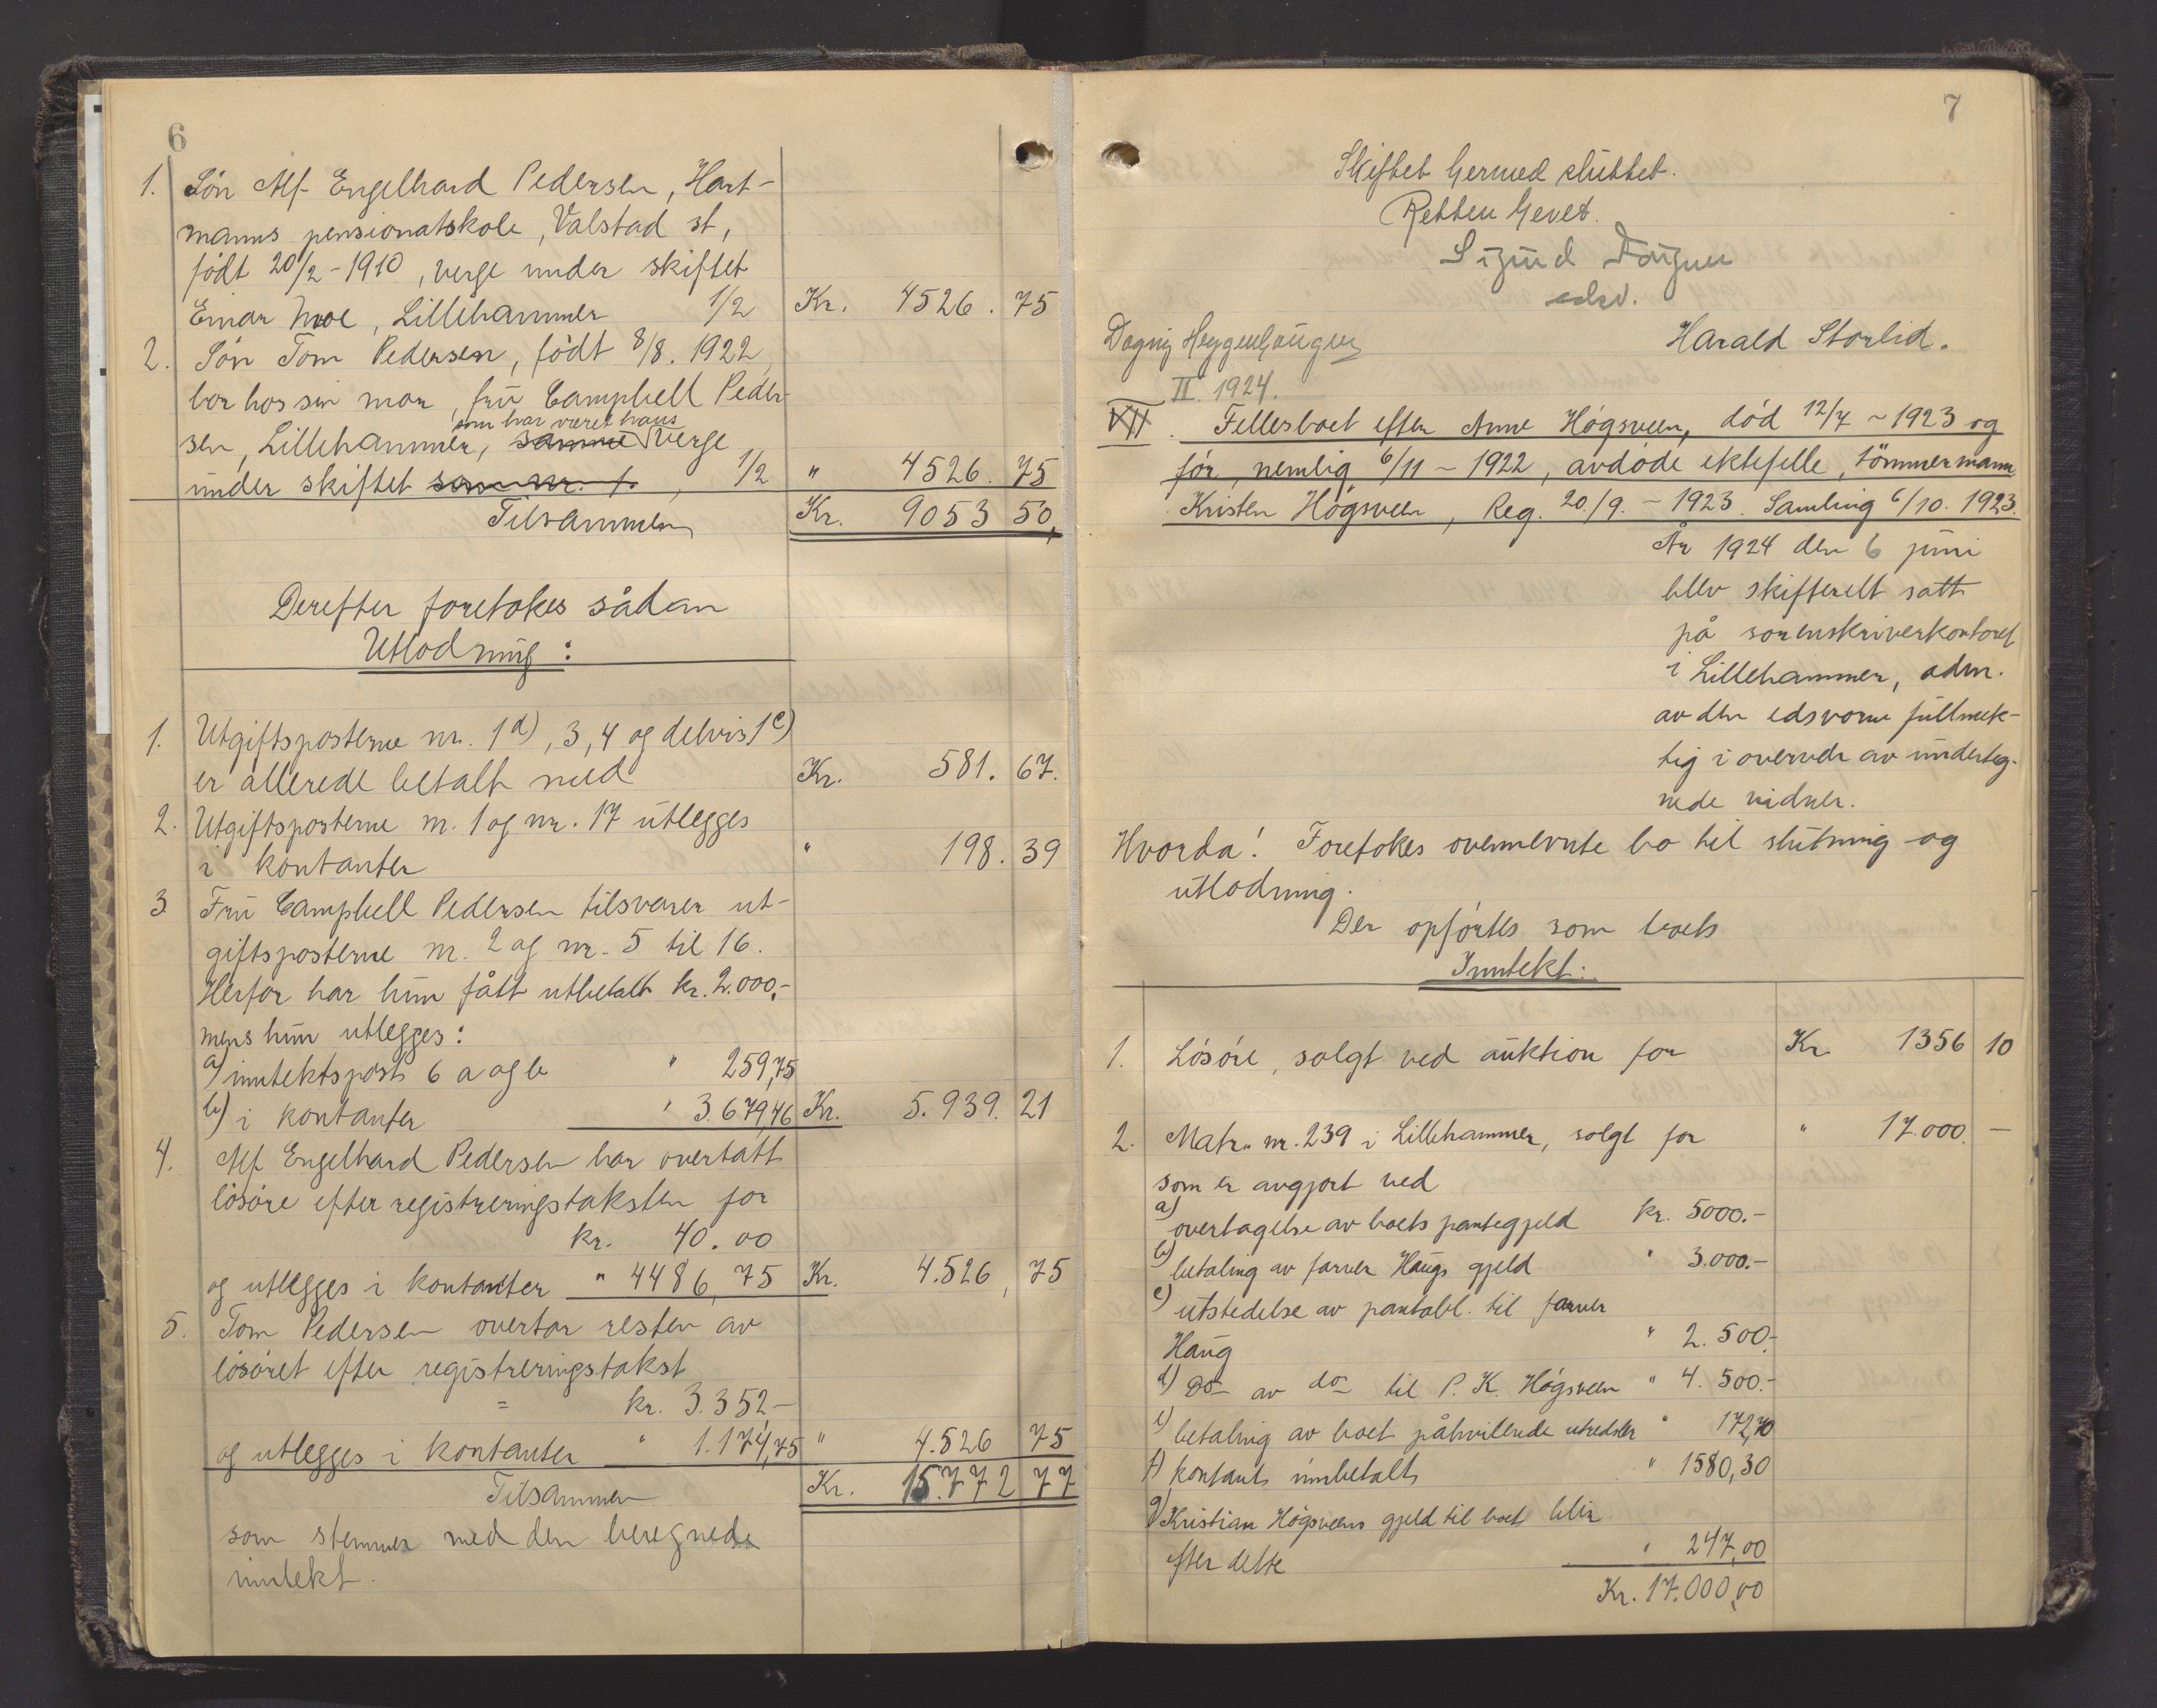 6
1. Sön Alf Engelhard Pedersen, Hart-
manns pensionatskole, Valstad st,
født 20/2-1910, verge under skiftet
Einar Moe, Lillehammer 1/2 Kr. 4526.75
2. Sön Tom Pedersen, født 8/8. 1922,
bor hos sin mor, fru Campbell Peder-
som har været hans
sen, Lillehammer, samme verge
under skiftet som nr. 1., 1/2 " 4526.75
Tilsammen Kr. 9053 50,
Derefter foretokes sådan
Utlodning:
1. Utgiftsposterne nr. 1 d), 3, 4 og delvis 1 c)
er allerede betalt med Kr. 581. 67.
2. Utgiftsposterne nr. 1 og nr. 17 utlegges
i kontanter " 198. 39
3 Fru Campbell Pedersen tilsvarer ut-
giftsposterne nr. 2 og nr. 5 til 16.
Herfor har hun fått utbetalt kr. 2.000,-
mens hun utlegges:
a) inntektspost 6 a og b " 259,75
b) i kontanter " 3.679,46 Kr. 5.939. 21
4. Alf Engelhard Pedersen har overtatt
lösöre efter registreringstaksten for
kr. 40.00
og utlegges i kontanter " 4486,75 Kr. 4.526, 75
5. Tom Pedersen overtar resten av
lösöret efter registreringstakst
= kr. 3.352,-
og utlegges i kontanter " 1.174,75 " 4.526 75
Tilsammen Kr. 15.772 77
som stemmer med den beregnede
inntekt.
7
Skiftet hermed sluttet.
Retten hevet.
Sigurd
edsv.
Dagny Heggenhaugen Harald Storlid.
II. 1924.
VII. Fellesboet efter Anne Högsveen, död 12/7 - 1923 og
för, nemlig 6/11 - 1922, avdöde ektefelle, tömmermann
Kristen Högsveen, Reg. 20./9. - 1923. Samling 6/10. 1923.
År 1924 den 6 juni
blev skifterett satt
på sorenskriverkontoret
i Lillehammer, adm.
av den edsvorne fullmek-
tig i overvær av underteg-
nede vidner.
Hvorda! Foretokes ovennevnte bo til slutning og
utlodning.
Der opførtes som boets
Inntekt:
1. Lösöre, solgt ved auktion for Kr. 1356 10
2. Matr. nr. 239 i Lillehammer, solgt for " 17.000. -
som er avgjort ved
a) overtagelse av boets pantegjeld kr. 5000.-
b) betaling av farver Haugs gjeld " 3.000.-
c) utstedelse av pantobl. til farver
Haug " 2.500.-
d) Do av do til P. K. Högsveen " 4.500.-
e) betaling av boet påhvilende utredsler " 172,70
f) kontant innbetalt " 1580,30
g) Kristian Högsveens gjeld til boet blir
efter dette " 247,00
Kr. 17.000,00